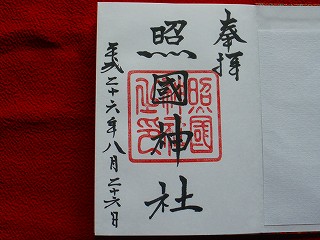 奉拝
照國神社
平成二十六年八月二十六日